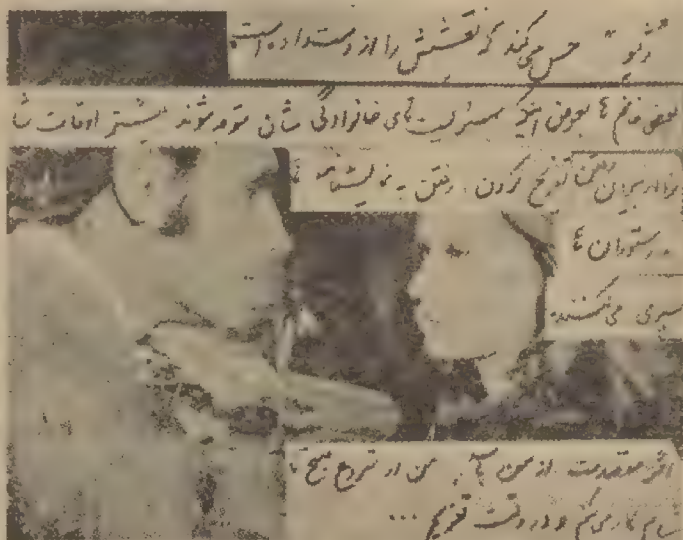 "رنو" حس می کند که نقشش را از دست داده است
بعضی خانم ها بعوض اینکه مسئولیت های خانوادگی شان متوجه شوند بیشتر اوقات شا
نرا در بیرون رفتن تفریح کردن، رفتن به نمایشنامه ها
، رستوران ها
سپری می کنند.
اگر مقصدت از من باشد، من از شروع صبح تا
شام کار می کنم و در وقت تفریح ...